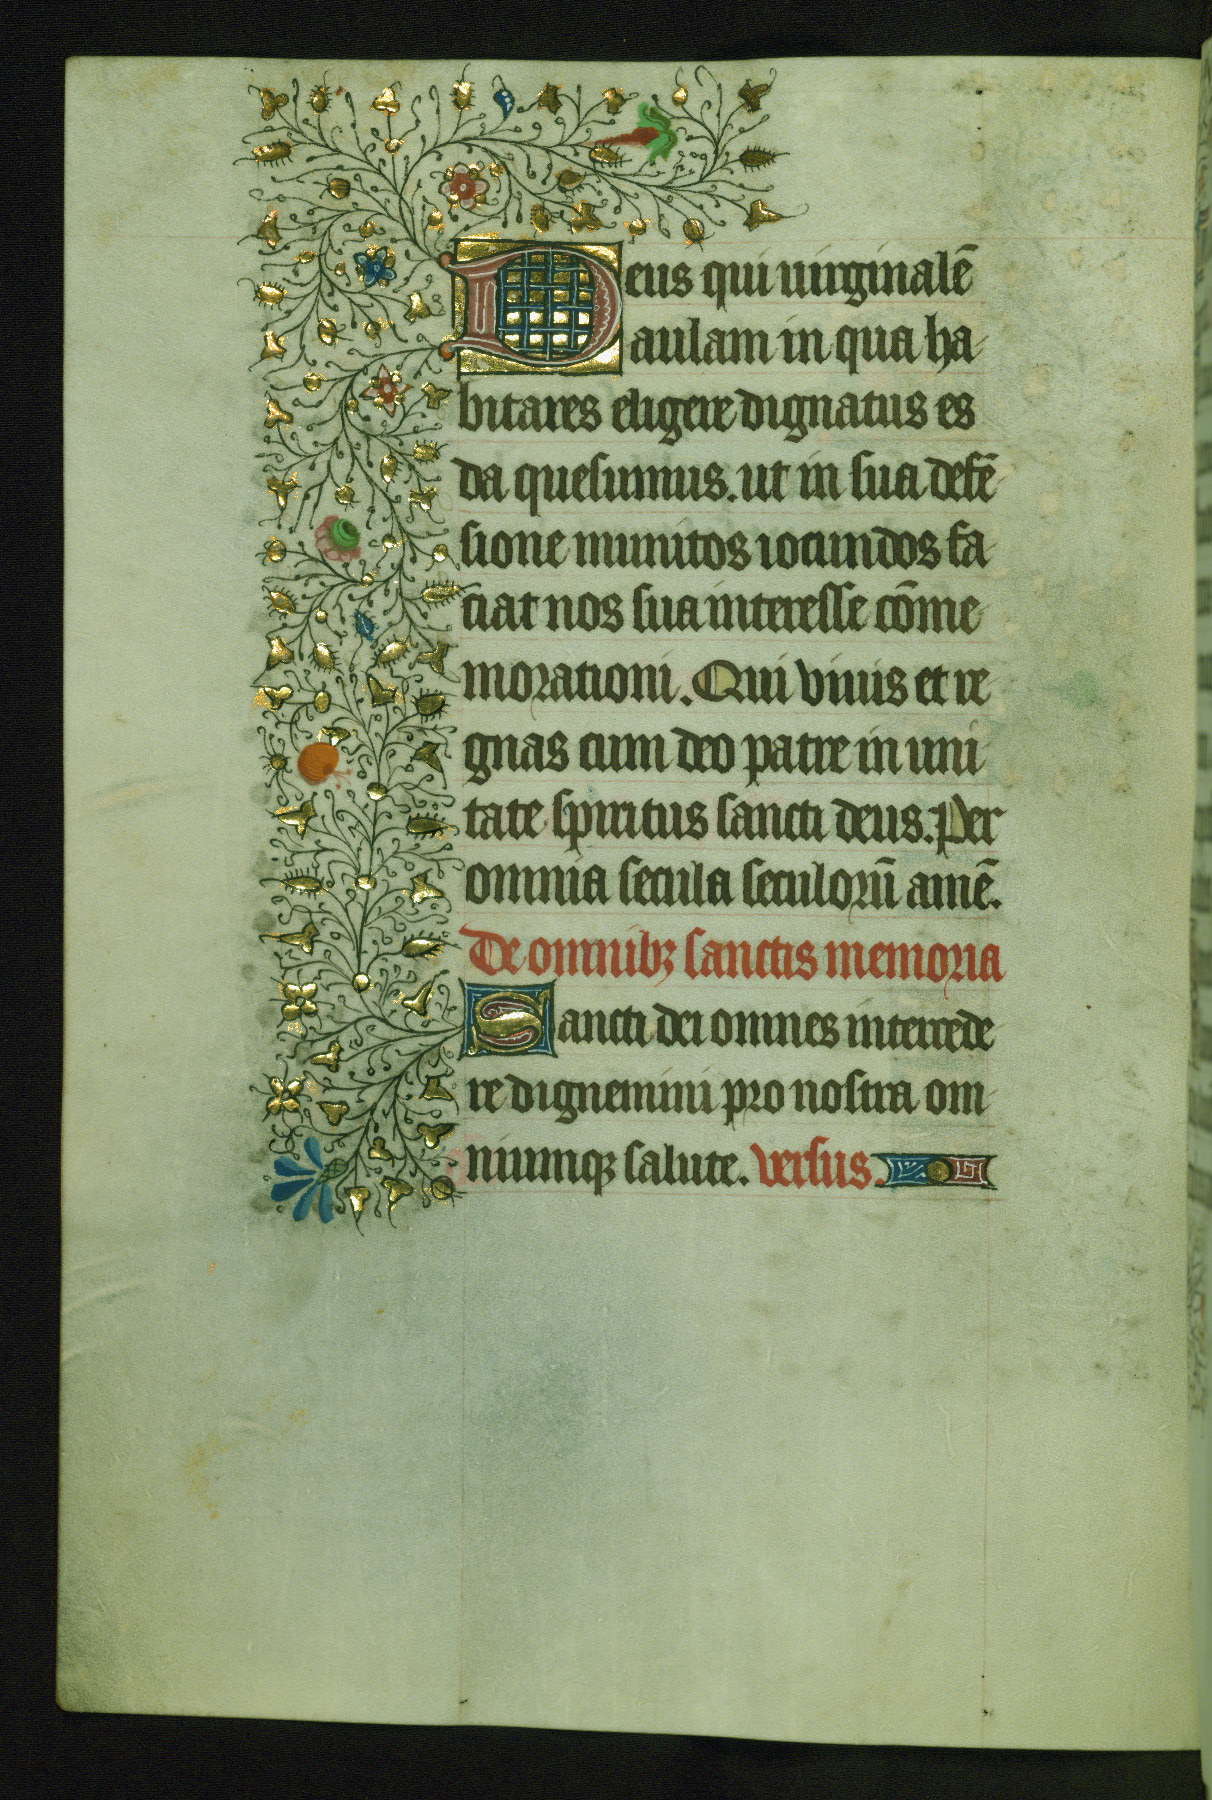 Deus qui uirginalē
aulam in qua ha
bitares eligere dignatus es
da quesumus. ut in sua defē
sione munitos iocundos fa
ciat nos sua interesse cōme
morationi. Qui viuis et re
gnas cum deo patre in uni
tate spiritus sancti deus. Per
omnia secula seculorū amē.
De omnibꝫ sanctis memoria
Sancti dei omnes intercede
re dignemini pro nostra om
niumqꝫ salute. versus.